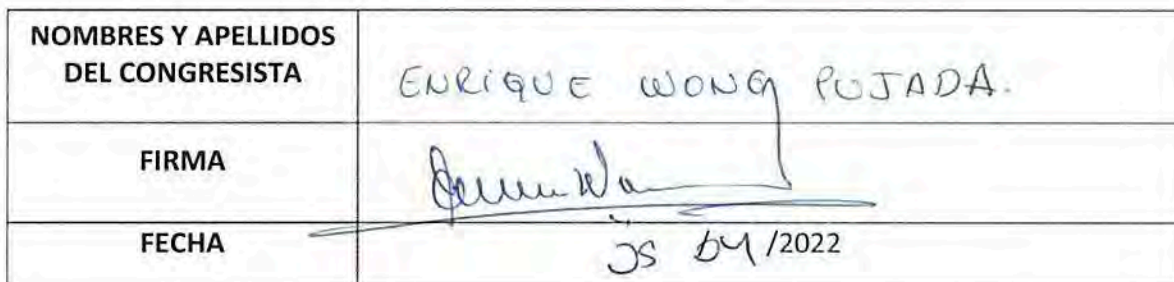 NOMBRES Y APELLIDOS
DEL CONGRESISTA
ENRIQUE WONG PUJADA.
FIRMA
FECHA
04/2022